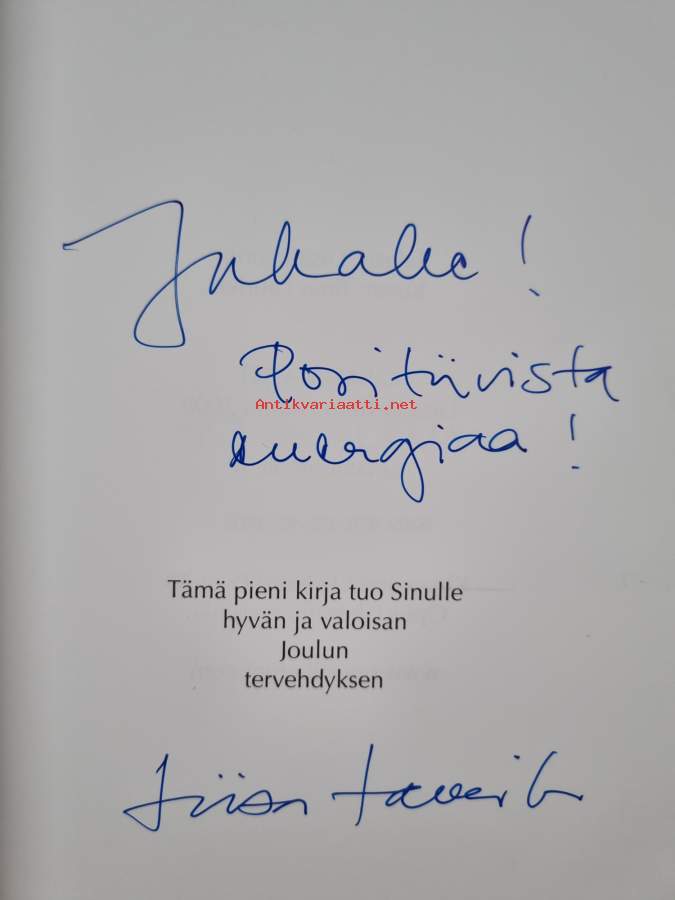 Juhalle!
Positiivista
Antikvariaatti.net
energiaa!
Tämä pieni kirja tuo Sinulle
hyvän ja valoisan
Joulun
tervehdyksen